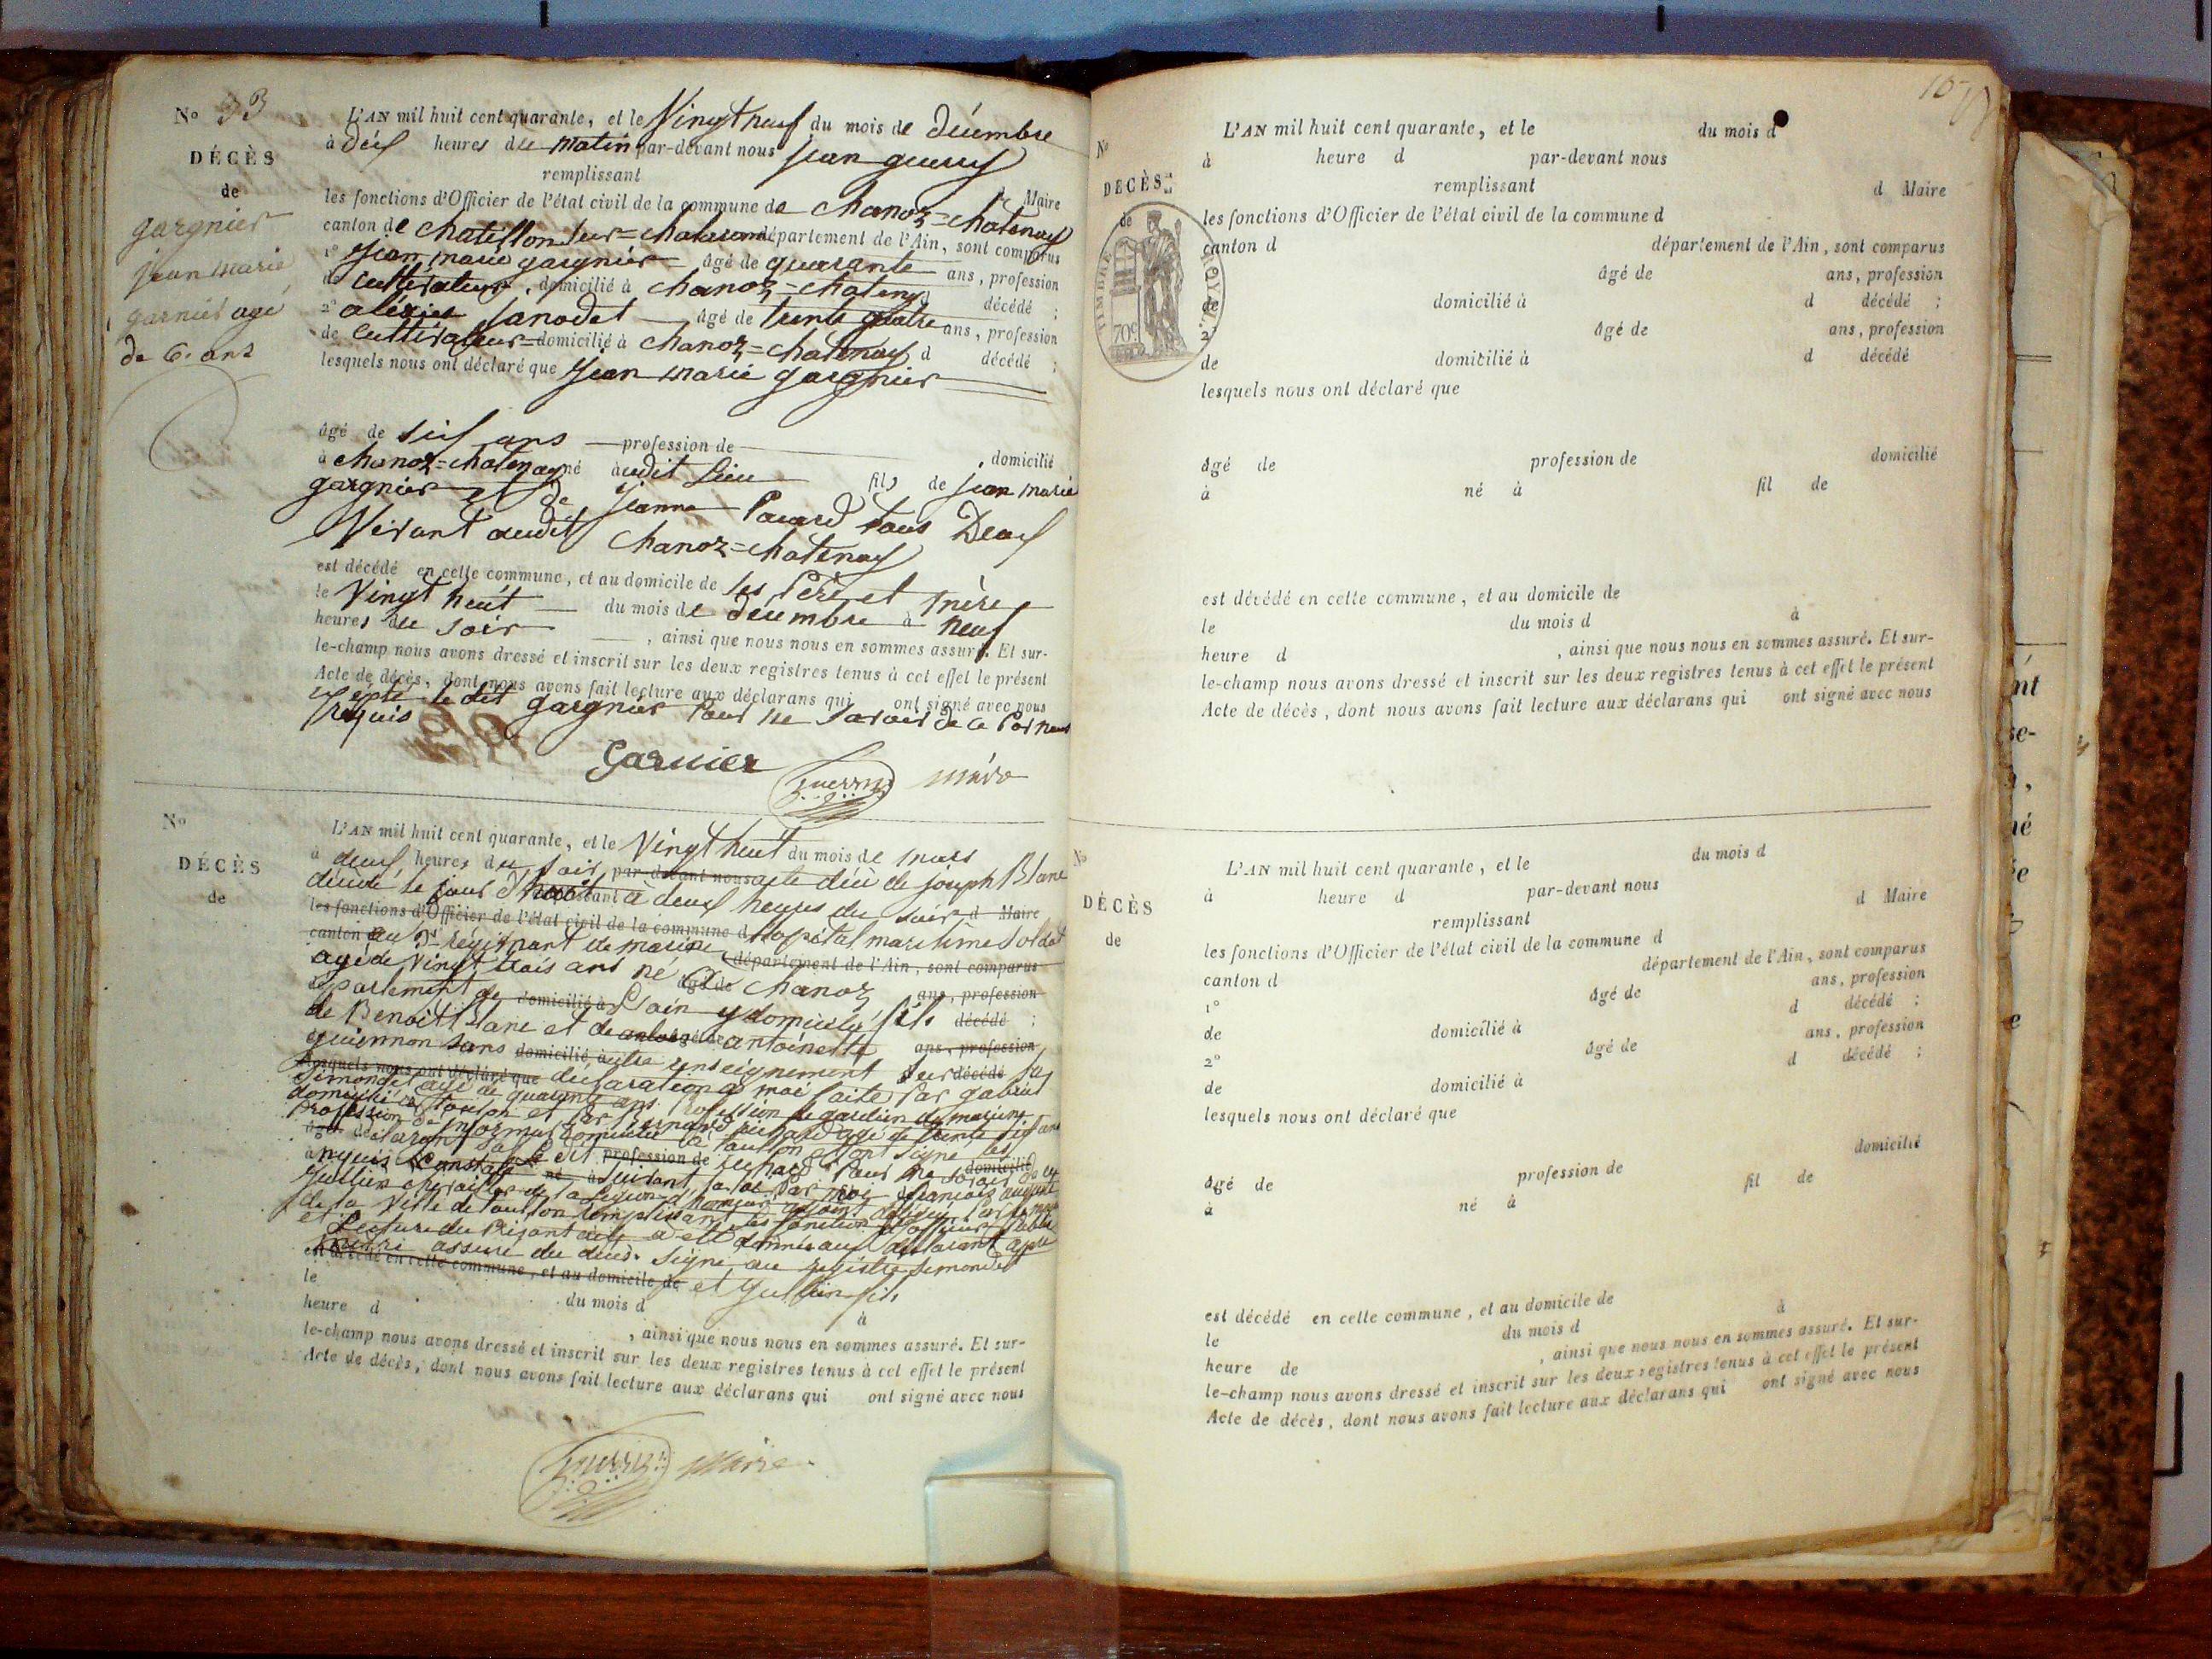 No 33
DÉCÈS
de
gargnier
jean marie
garnier agé
de 6 ans
L'AN mil huit cent quarante, et le Vingt neuf du mois de décembre
à dix heures du matin par-devant nous jean guerry
remplissant Maire
les fonctions d'Officier de l'état civil de la commune de chanoz=chatenay
canton de chatillon sur=chalaronne département de l'Ain, sont comparus
1° jean marie gargnier âgé de quarante ans, profession
de cultivateur, domicilié à chanoz=chatenay d décédé ;
2° aléxis Janodet âgé de trente quatre ans, profession
de cultivateur domicilié à chanoz=chatenay d décédé ;
lesquels nous ont déclaré que jean marie gargnier
âgé de six ans profession de , domicilié
à chanoz=chatenay né audit lieu fils de jean marie
gargnier et de jeanne Pacard tous Deux
Vivant audit chanoz=chatenay
est décédé en cette commune, et au domicile de ses Père et mère
le Vingt huit du mois de décembre à neuf
heures du soir , ainsi que nous nous en sommes assuré. Et sur-
le-champ nous avons dressé et inscrit sur les deux registres tenus à cet effet le présent
Acte de décès, dont nous avons fait lecture aux déclarans qui ont signé avec nous
le dit gargnier Pour ne savoir de ce Par nous
requis
Garnier guerry maire
No
DÉCÈS
de
L'AN mil huit cent quarante, et le Vingt huit du mois de mars
à deux heures du soir par-devant nous acte décè de joseph Blanc
décédé le jour à deux heures du soir d Maire
les fonctions d'Officier de l'état civil de la commune d hopital maritime soldat
canton au régiment de marine département de l'Ain, sont comparus
agé de Vingt trois ans né âgé de à chanoz ans, profession
département de domicilié à l'ain y domicilié fils décédé ;
de Benoit Blanc et de antoinette ans, profession
sans domicilié à autre renseignement sur décédé
lesquels nous ont déclaré que déclaration à moi faite Par gabriel
Simondet agé de quarante ans Profession de gardien de marine
domicilié à toulon et Par Bernard richard agé de trente ans
Profession domicilié à toulon ont signé les
âgé déclarant le dit profession de richard Pour ne savoir de ce
requis Constaté né à suivant la loi Par moi françois auguste
chevalier de la légion d'honneur adjoint délégué Par le maire
de la Ville de toulon remplissant les fonction d'officier Public
Lecture du Présent acte a été donnée aux déclarant après
assuré du décès. signé au registre Simondet
est décédé en cette commune, et au domicile de et fils
le du mois d à
heure d , ainsi que nous nous en sommes assuré. Et sur-
le-champ nous avons dressé et inscrit sur les deux registres tenus à cet effet le présent
Acte de décès, dont nous avons fait lecture aux déclarans qui ont signé avec nous
guerry Maire
No
DÉCÈS
de
TIMBRE ROYAL
70c
L'AN mil huit cent quarante, et le du mois d
à heure d par-devant nous
remplissant d Maire
les fonctions d'Officier de l'état civil de la commune d
canton d département de l'Ain, sont comparus
âgé de ans, profession
de domicilié à d décédé ;
2° âgé de ans, profession
de domicilié à d décédé
lesquels nous ont déclaré que
âgé de profession de domicilié
à né à fil de
est décédé en cette commune, et au domicile de
le du mois d à
heure d , ainsi que nous nous en sommes assuré. Et sur-
le-champ nous avons dressé et inscrit sur les deux registres tenus à cet effet le présent
Acte de décès, dont nous avons fait lecture aux déclarans qui ont signé avec nous
No
DÉCÈS
de
L'AN mil huit cent quarante, et le du mois d
à heure d par-devant nous
remplissant d Maire
les fonctions d'Officier de l'état civil de la commune d
canton d département de l'Ain, sont comparus
1° âgé de ans, profession
de domicilié à d décédé ;
2° âgé de ans, profession
de domicilié à d décédé ;
lesquels nous ont déclaré que
âgé de profession de domicilié
à né à fil de
est décédé en cette commune, et au domicile de
le du mois d à
heure de , ainsi que nous nous en sommes assuré. Et sur-
le-champ nous avons dressé et inscrit sur les deux registres tenus à cet effet le présent
Acte de décès, dont nous avons fait lecture aux déclarans qui ont signé avec nous